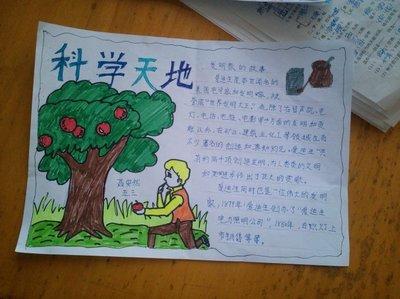 科学天地
发明家的故事
爱迪生是举世闻名的
美国电学家和发明家，被
誉为"世界发明大王"。他除了在留声机、电
灯、电话、电报、电影等方面的发明和贡
献以外，在矿业、建筑业、化工等领域也有
不少著名的创造和真知灼见。爱迪生一生共
有约两千项创造发明，为人类的文明
和进步作出了巨大的贡献。
爱迪生同时也是一位伟大的发明
家，1879年，爱迪生创办了"爱迪生
电力照明公司"，1880年，白炽灯上
市销售等等。
五三